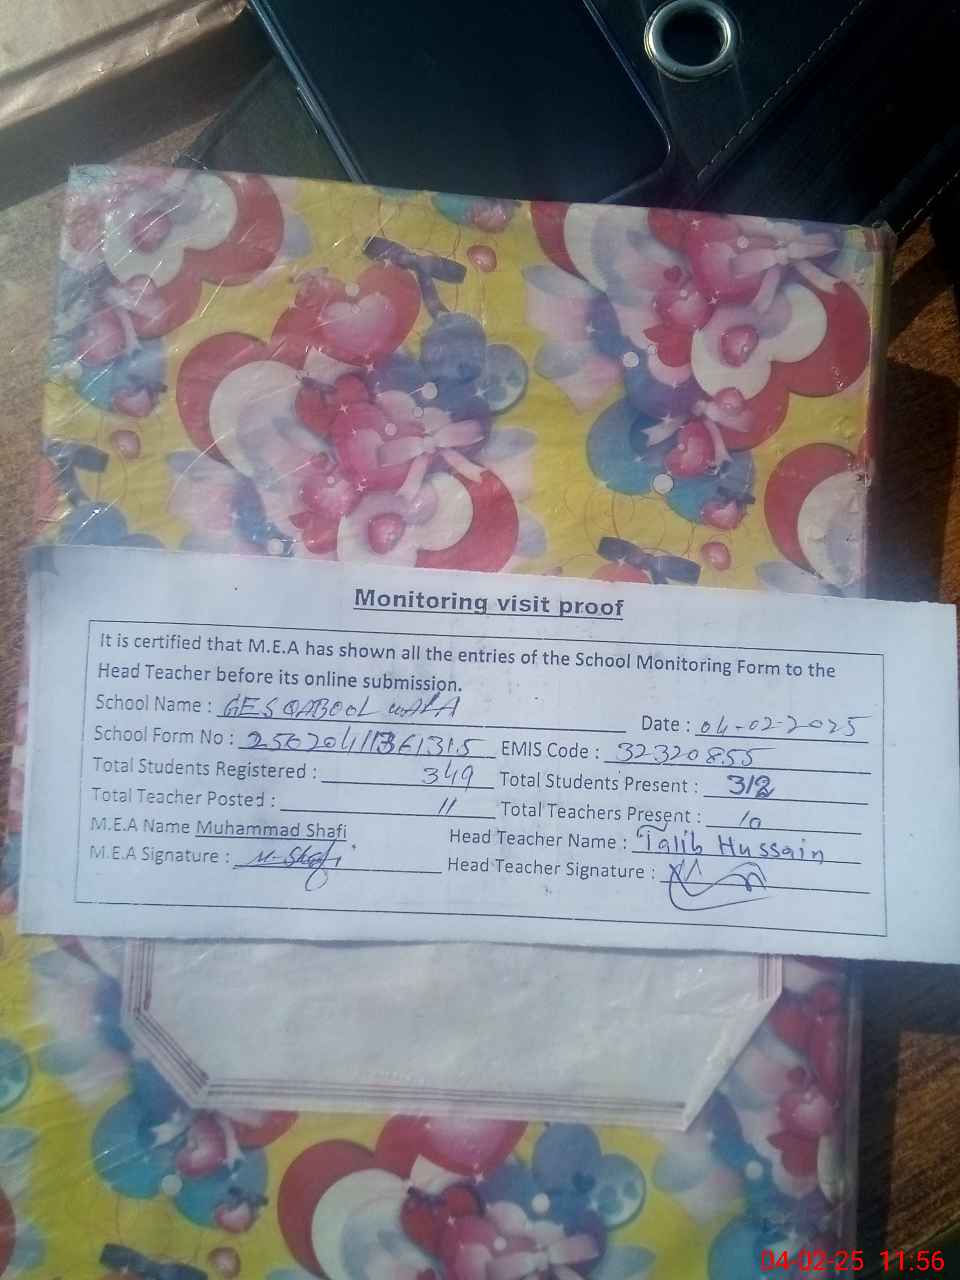 Monitoring visit proof
It is certified that M.E.A has shown all the entries of the School Monitoring Form to the
Head Teacher before its online submission.
School Name : GES QABOOL WALA Date : 04-02-2025
School Form No : EMIS Code : 32320855
Total Students Registered : 349 Total Students Present : 312
Total Teacher Posted : 11 Total Teachers Present : 10
M.E.A Name Muhammad Shafi Head Teacher Name : Talib Hussain
M.E.A Signature : M-Shafi Head Teacher Signature :
04-02-25 11:56